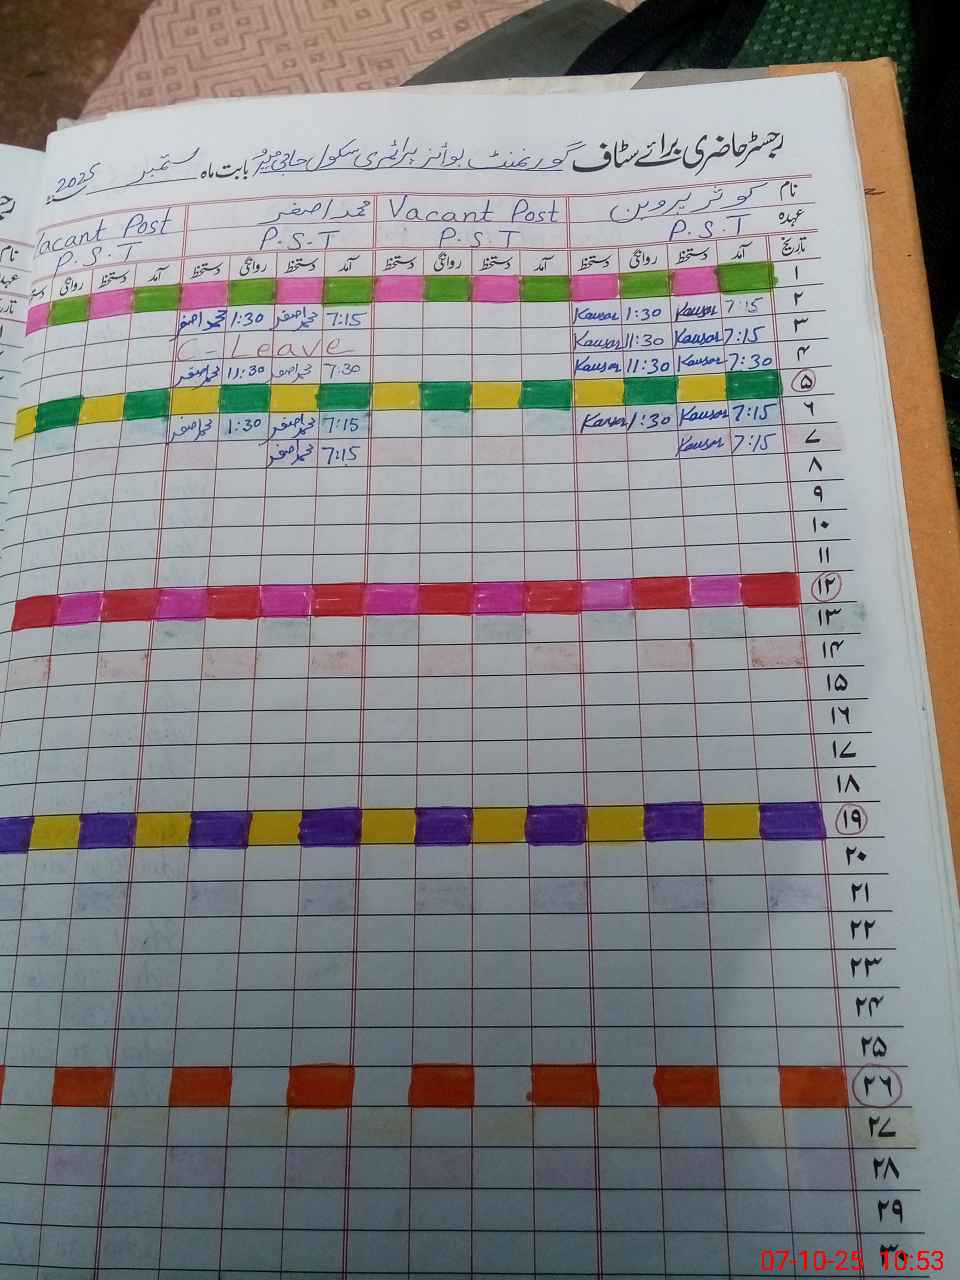 رجسٹر حاضری برائے سٹاف گورنمنٹ بوائز پرائمری سکول حاجی بابت ماہ ستمبر 2025
نام کوثر پروین Vacant Post محمد اصغر Vacant Post
عہدہ P.S.T P.S.T P.S.T P.S.T
تاریخ آمد دستخط روانگی دستخط آمد دستخط روانگی دستخط آمد دستخط روانگی دستخط آمد دستخط روانگی
۱
۲ 7:15 Kausar 1:30 Kausar 7:15 محمد اصغر 1:30 محمد اصغر
۳ 7:15 Kausar 11:30 Kausar C-Leave
۴ 7:30 Kausar 11:30 Kausar 7:30 محمد اصغر 11:30 محمد اصغر
۵
۶ 7:15 Kausar 1:30 Kausar 7:15 محمد اصغر 1:30 محمد اصغر
۷ 7:15 Kausar 7:15 محمد اصغر
۸
۹
۱۰
۱۱
۱۲
۱۳
۱۴
۱۵
۱۶
۱۷
۱۸
۱۹
۲۰
۲۱
۲۲
۲۳
۲۴
۲۵
۲۶
۲۷
۲۸
۲۹
۳۰
07-10-25 10:53